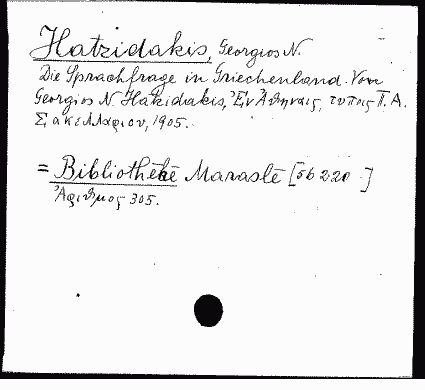 Hatzidakis, Georgios N.
Die Sprachfrage in Griechenland. Von
Georgios N. Hatzidakis, Ἐν Ἀθήναις, τυποις Π. Α.
Σακελλαριου, 1905.
= Bibliothēkē Maraslē [5b 220 ]
Ἀριθμος 305.